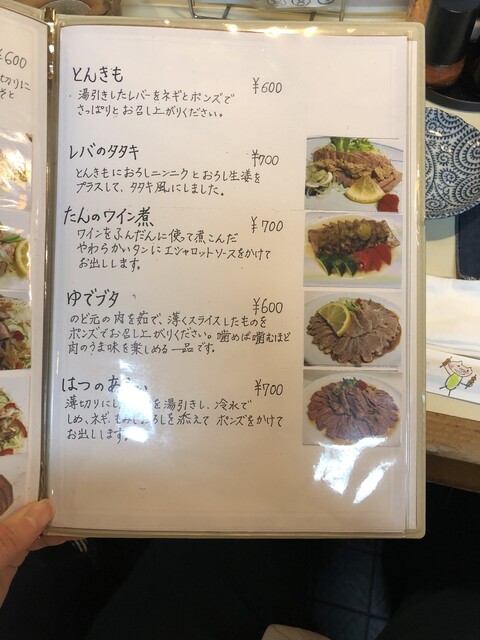 ¥600
切りに
とんきも ¥600
湯引きしたレバーをネギとポンズで
さっぱりとお召し上がりください。
レバのタタキ ¥700
とんきもにおろしニンニクとおろし生姜を
プラスして、タタキ風にしました。
たんのワイン煮 ¥700
ワインをふんだんに使って煮こんだ
やわらかいタンにエシャロットソースをかけて
お出しします。
ゆでブタ ¥600
のど元の肉を茹で、薄くスライスしたものを
ポンズでお召し上がりください。噛めば噛むほど
肉のうま味を楽しめる一品です。
はつのあ ¥700
薄切りにし を湯引きし、冷水で
しめ、ネギ、もみじおろしを添えてポンズをかけて
お出しします。